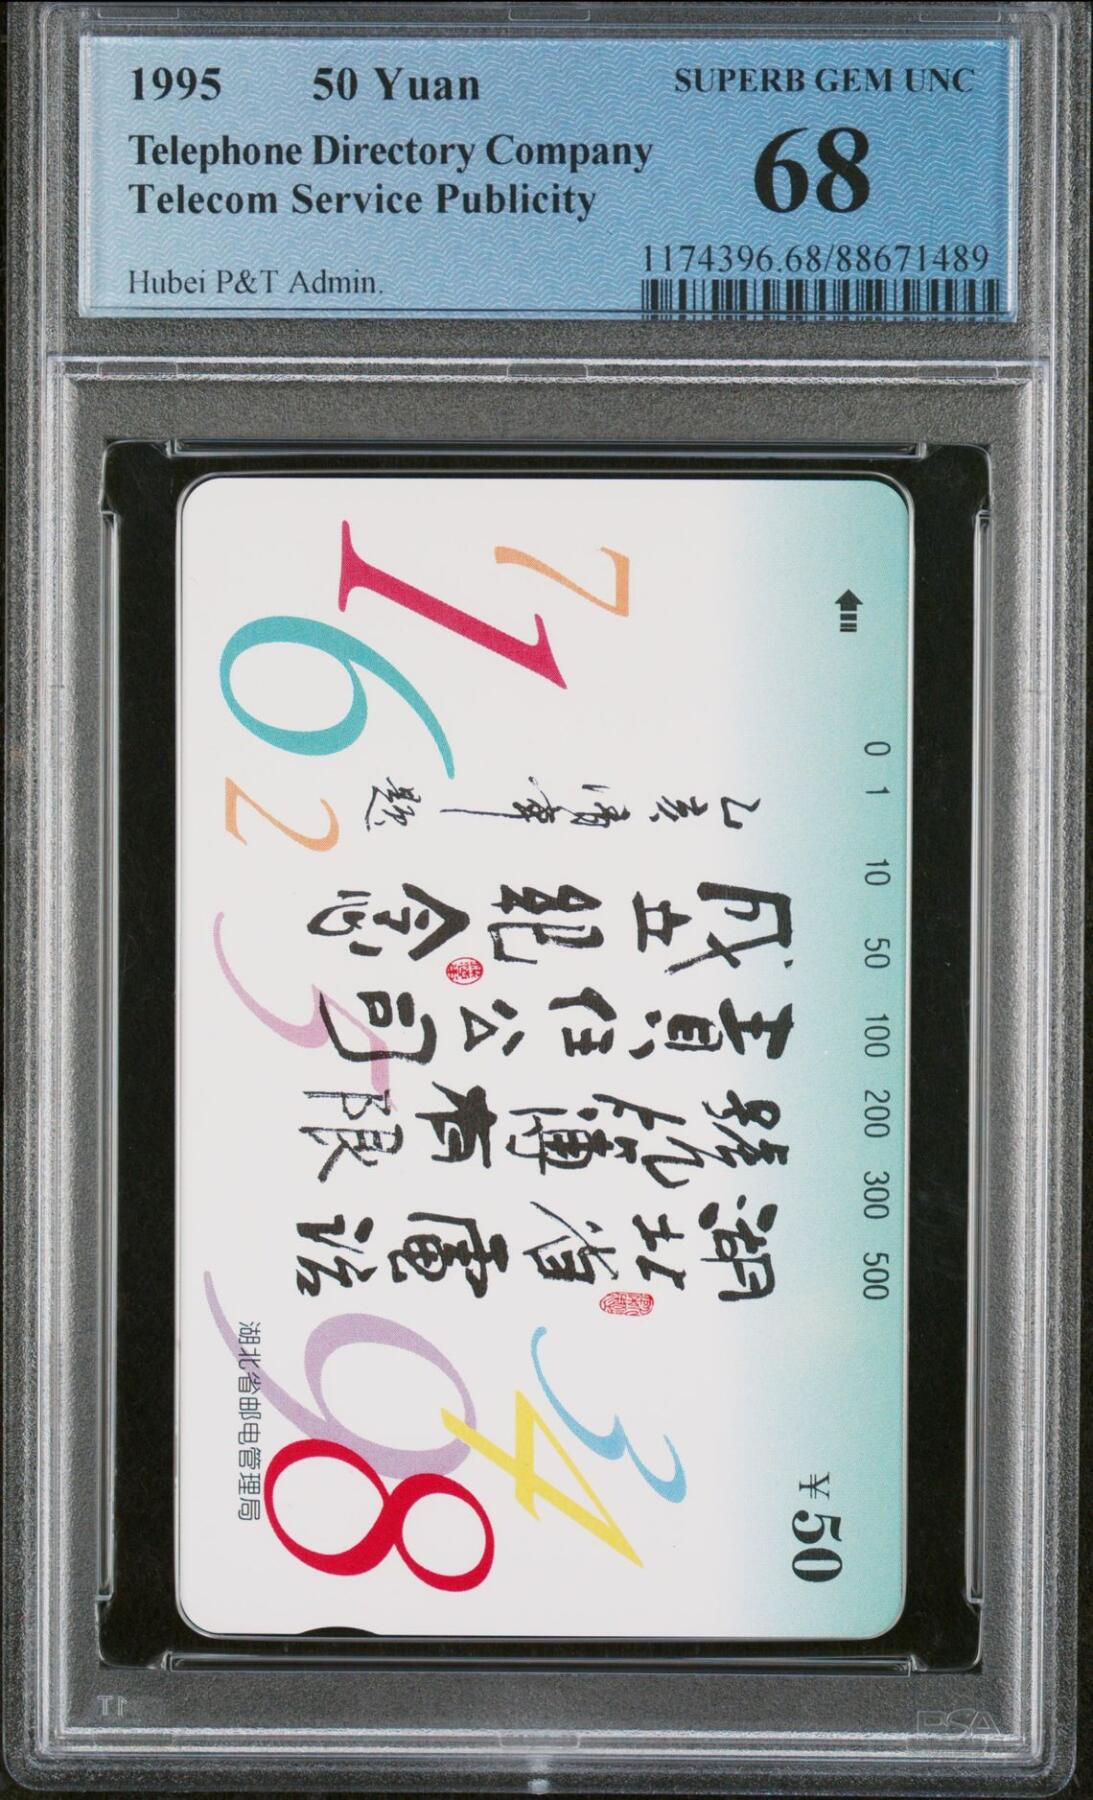 1995 50 Yuan
SUPERB GEM UNC
Telephone Directory Company
68
Telecom Service Publicity
1174396.68/88671489
Hubei P&T Admin.
0 1 10 50 100 200 300 500
¥50
湖北省電話
號碼簿有限
責任公司
成立紀念
乙亥 題
7
1
6
2
5
9
3
4
8
湖北省邮电管理局
PSA